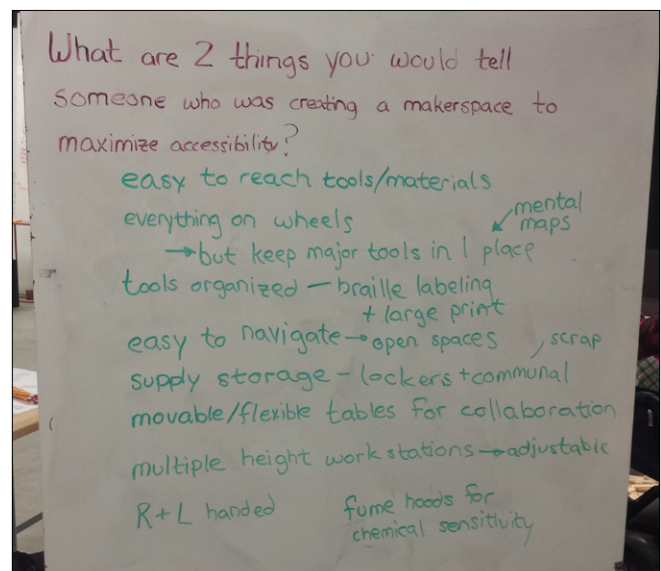 What are 2 things you would tell
someone who was creating a makerspace to
maximize accessibility?
easy to reach tools/materials
everything on wheels
mental
maps
→but keep major tools in 1 place
tools organized — braille labeling
+ large print
easy to navigate → open spaces
, scrap
supply storage - lockers + communal
movable/flexible tables for collaboration
multiple height work stations → adjustable
R+L handed
fume hoods for
chemical sensitivity